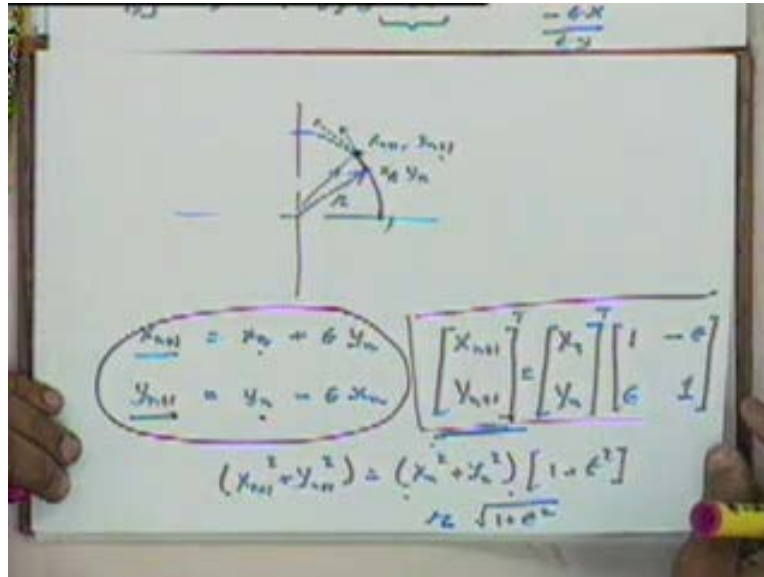 - ϵ x
x_{n+1}, y_{n+1}
y_n
r
x_{n+1} = x_n + ϵ y_n
y_{n+1} = y_n - ϵ x_n
[x_{n+1} y_{n+1}]^T = [x_n y_n]^T [1 -ϵ ϵ 1]
(x_{n+1}^2 + y_{n+1}^2) = (x_n^2 + y_n^2) [1 + ϵ^2]
r √(1+ϵ^2)